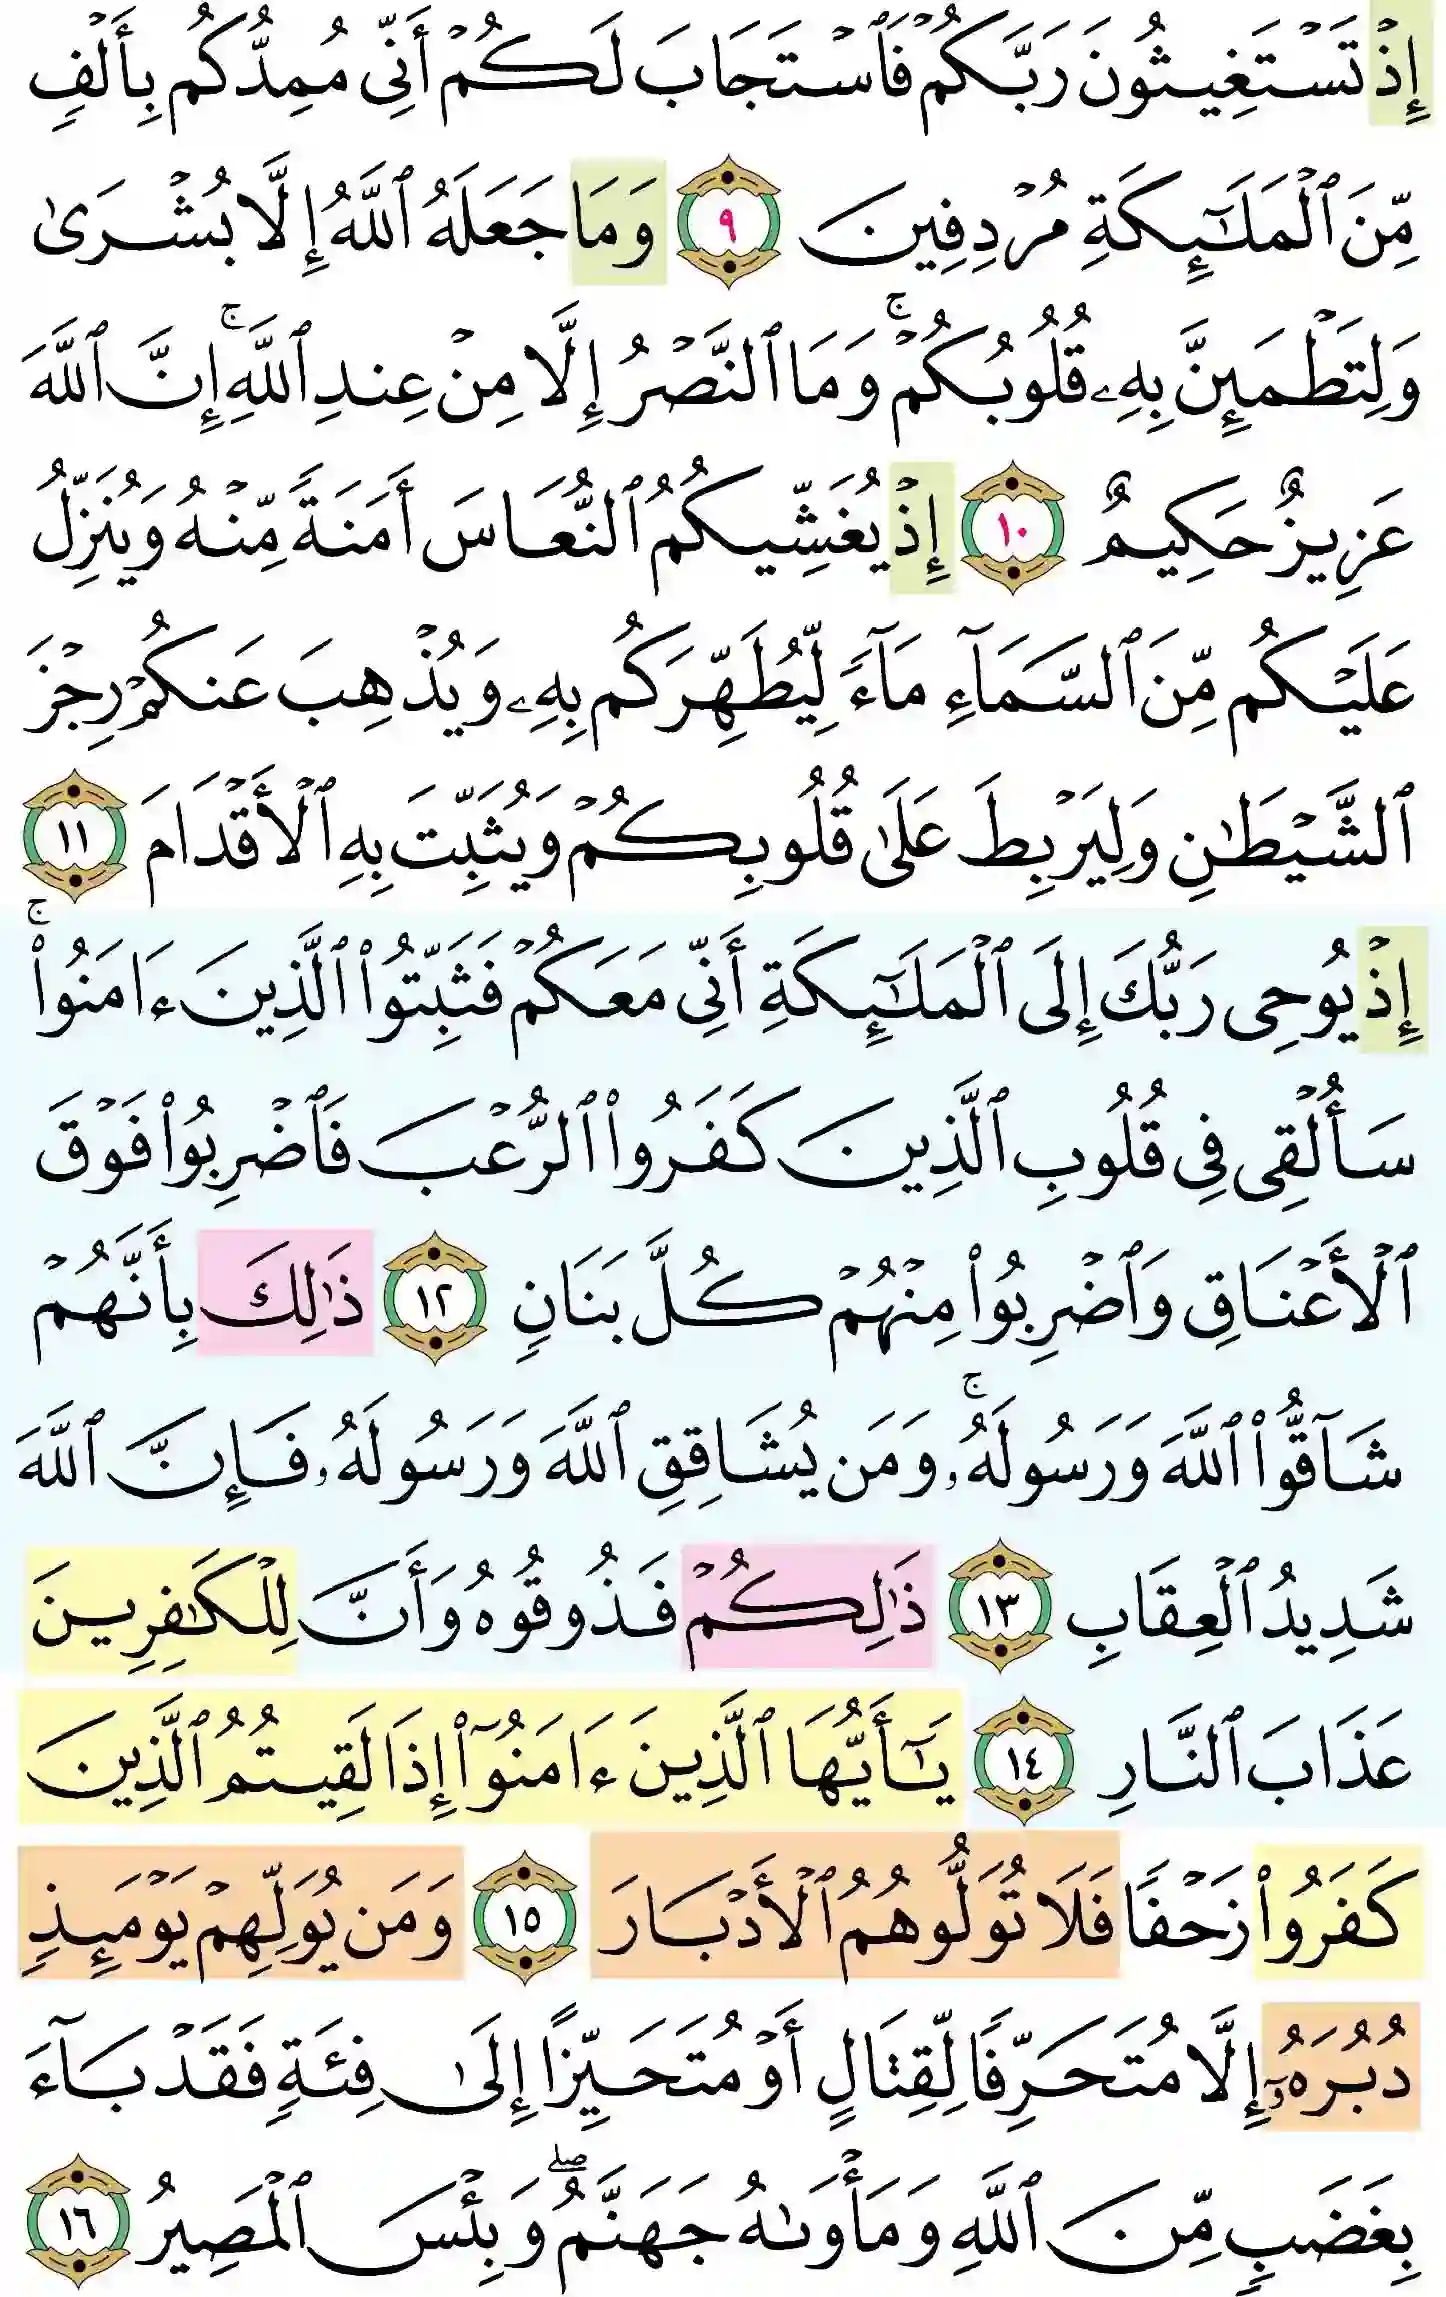 إِذۡ تَسۡتَغِيثُونَ رَبَّكُمۡ فَٱسۡتَجَابَ لَكُمۡ أَنِّي مُمِدُّكُم بِأَلۡفٖ
مِّنَ ٱلۡمَلَٰٓئِكَةِ مُرۡدِفِينَ ٩ وَمَا جَعَلَهُ ٱللَّهُ إِلَّا بُشۡرَىٰ
وَلِتَطۡمَئِنَّ بِهِۦ قُلُوبُكُمۡۚ وَمَا ٱلنَّصۡرُ إِلَّا مِنۡ عِندِ ٱللَّهِۚ إِنَّ ٱللَّهَ
عَزِيزٌ حَكِيمٌ ١٠ إِذۡ يُغَشِّيكُمُ ٱلنُّعَاسَ أَمَنَةٗ مِّنۡهُ وَيُنَزِّلُ
عَلَيۡكُم مِّنَ ٱلسَّمَآءِ مَآءٗ لِّيُطَهِّرَكُم بِهِۦ وَيُذۡهِبَ عَنكُمۡ رِجۡزَ
ٱلشَّيۡطَٰنِ وَلِيَرۡبِطَ عَلَىٰ قُلُوبِكُمۡ وَيُثَبِّتَ بِهِ ٱلۡأَقۡدَامَ ١١
إِذۡ يُوحِي رَبُّكَ إِلَى ٱلۡمَلَٰٓئِكَةِ أَنِّي مَعَكُمۡ فَثَبِّتُواْ ٱلَّذِينَ ءَامَنُواْۚ
سَأُلۡقِي فِي قُلُوبِ ٱلَّذِينَ كَفَرُواْ ٱلرُّعۡبَ فَٱضۡرِبُواْ فَوۡقَ
ٱلۡأَعۡنَاقِ وَٱضۡرِبُواْ مِنۡهُمۡ كُلَّ بَنَانٖ ١٢ ذَٰلِكَ بِأَنَّهُمۡ
شَآقُّواْ ٱللَّهَ وَرَسُولَهُۥۚ وَمَن يُشَاقِقِ ٱللَّهَ وَرَسُولَهُۥ فَإِنَّ ٱللَّهَ
شَدِيدُ ٱلۡعِقَابِ ١٣ ذَٰلِكُمۡ فَذُوقُوهُ وَأَنَّ لِلۡكَٰفِرِينَ
عَذَابَ ٱلنَّارِ ١٤ يَٰٓأَيُّهَا ٱلَّذِينَ ءَامَنُوٓاْ إِذَا لَقِيتُمُ ٱلَّذِينَ
كَفَرُواْ زَحۡفٗا فَلَا تُوَلُّوهُمُ ٱلۡأَدۡبَارَ ١٥ وَمَن يُوَلِّهِمۡ يَوۡمَئِذٖ
دُبُرَهُۥٓ إِلَّا مُتَحَرِّفٗا لِّقِتَالٍ أَوۡ مُتَحَيِّزًا إِلَىٰ فِئَةٖ فَقَدۡ بَآءَ
بِغَضَبٖ مِّنَ ٱللَّهِ وَمَأۡوَىٰهُ جَهَنَّمُۖ وَبِئۡسَ ٱلۡمَصِيرُ ١٦